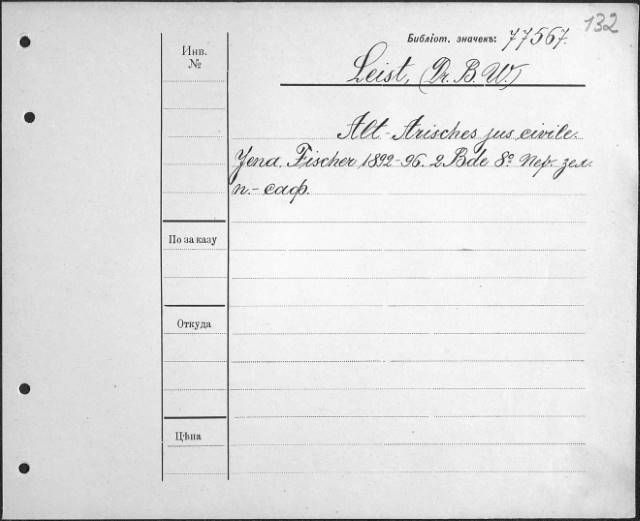 132
Библіот. значекъ: 77567.
Инв.
№
Leist, (Dr. B. W.)
Alt-Arisches jus civile.
Jena. Fischer 1892-96. 2 Bde 8º. Пер. зел.
п.-саф.
По заказу
Откуда
Цѣна